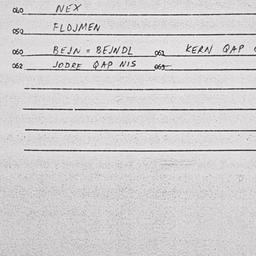 040 NEX
050 FLOJMEN
060 BEJN = BEJNDL 061 KERN QAP
062 JODRE QAP NIS 063